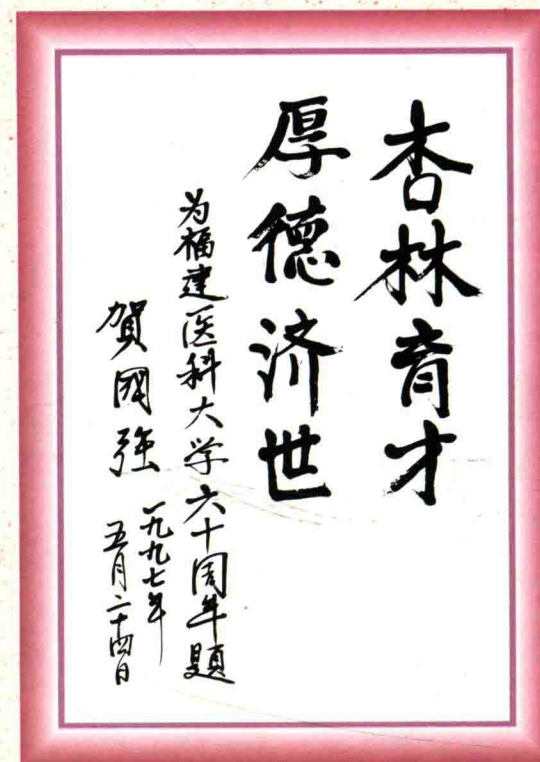 杏林育才
厚德济世
为福建医科大学六十周年题
賀國强
一九九七年
五月二十四日